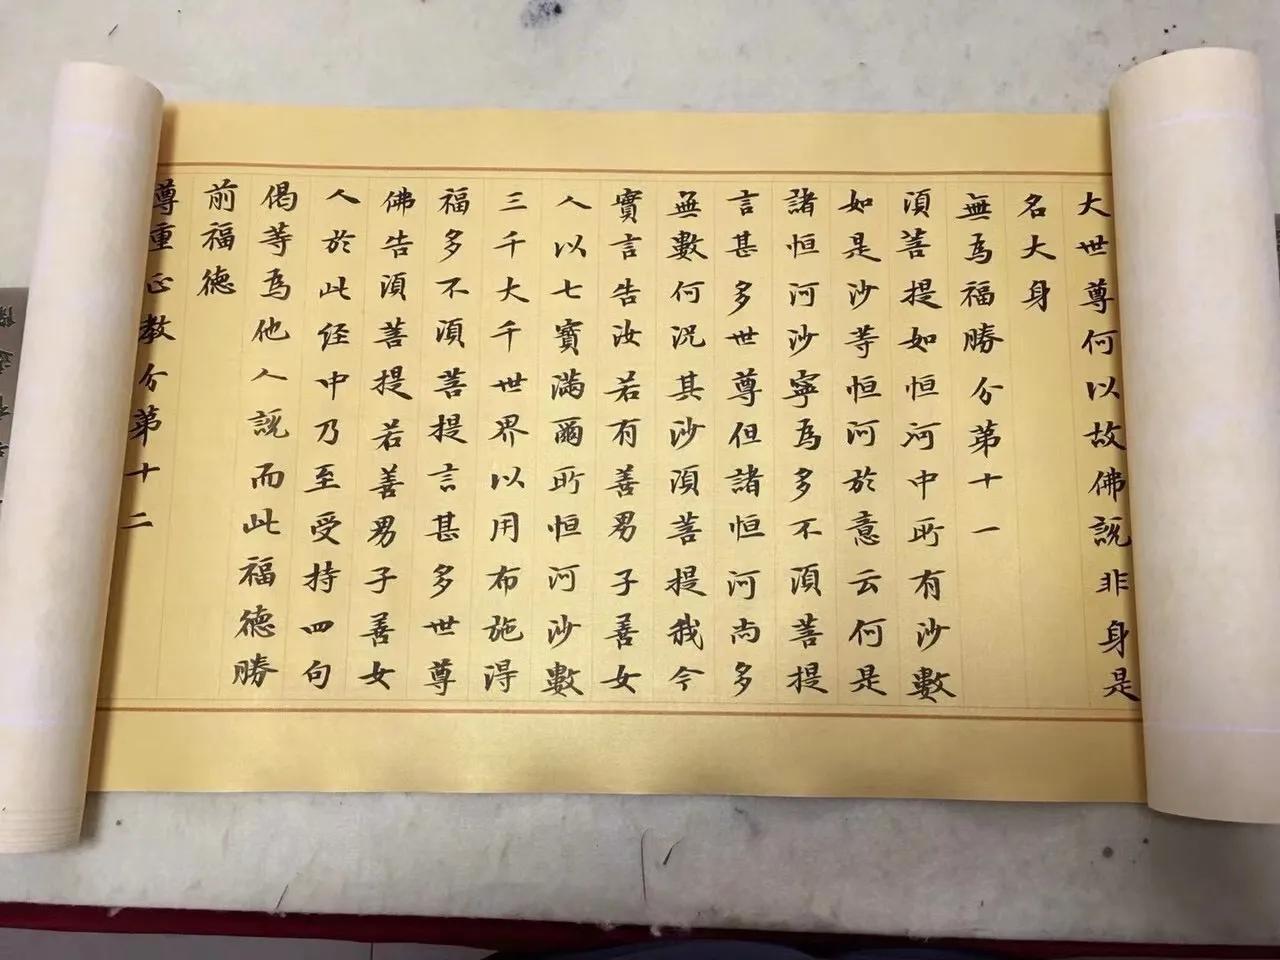 大世尊何以故佛説非身是
名大身
無爲福勝分第十一
湏菩提如恒河中所有沙數
如是沙等恒河於意云何是
諸恒河沙寧爲多不湏菩提
言甚多世尊但諸恒河尚多
無數何況其沙湏菩提我今
實言告汝若有善男子善女
人以七寶滿爾所恒河沙數
三千大千世界以用布施得
福多不湏菩提言甚多世尊
佛告湏菩提若善男子善女
人於此經中乃至受持四句
偈等爲他人説而此福德勝
前福德
尊重正教分第十二